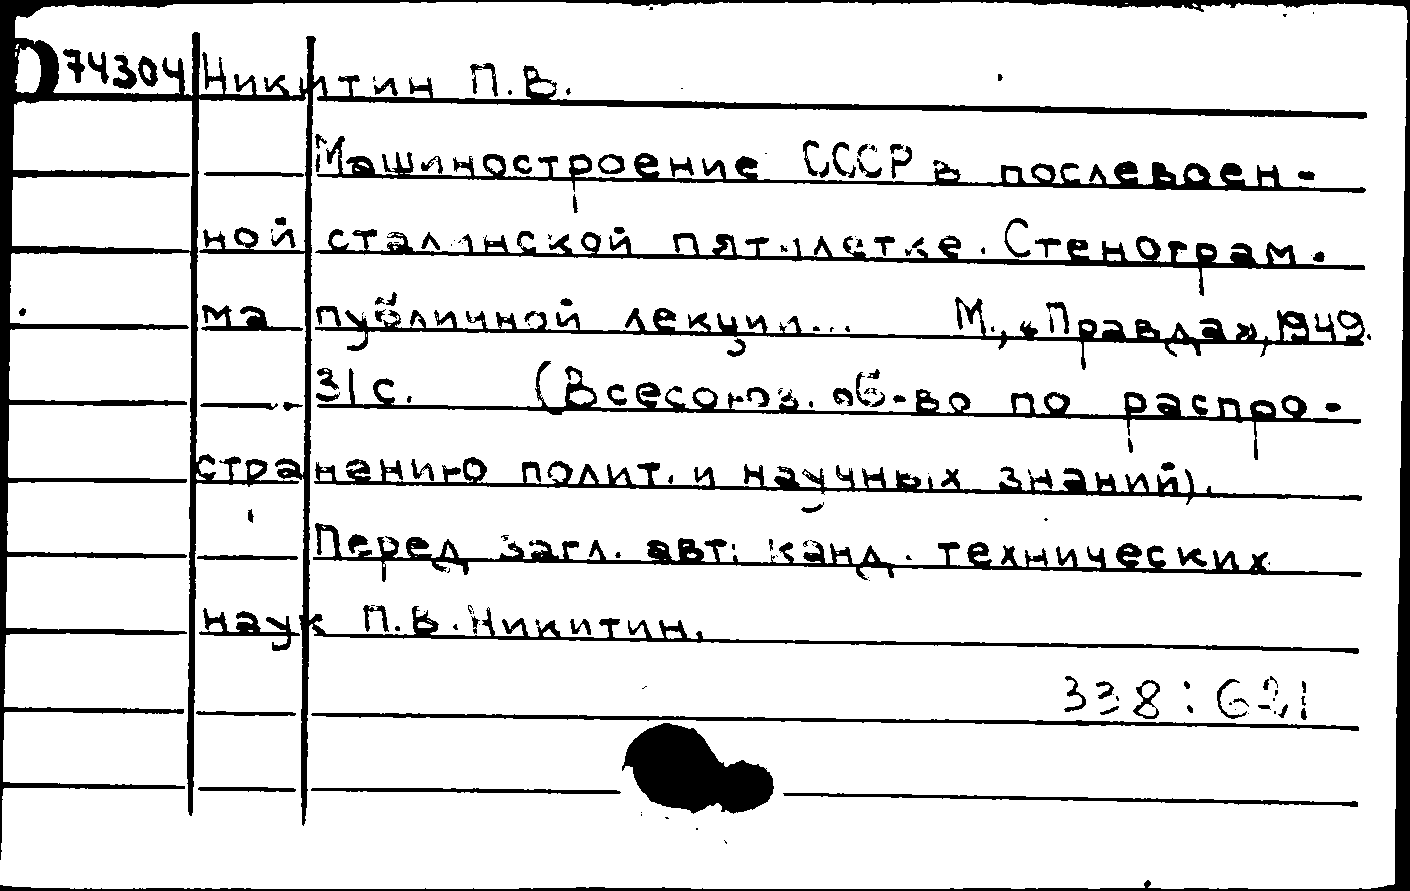 D74304 Никитин П.В.
Машиностроение СССР в послевоен-
ной сталинской пятилетке. Стенограм-
ма публичной лекции... М., «Правда», 1949.
31с. (Всесоюз. об-во по распро-
странению полит. и научных знаний).
Перед загл. авт: канд. технических
наук П.В. Никитин.
338:621